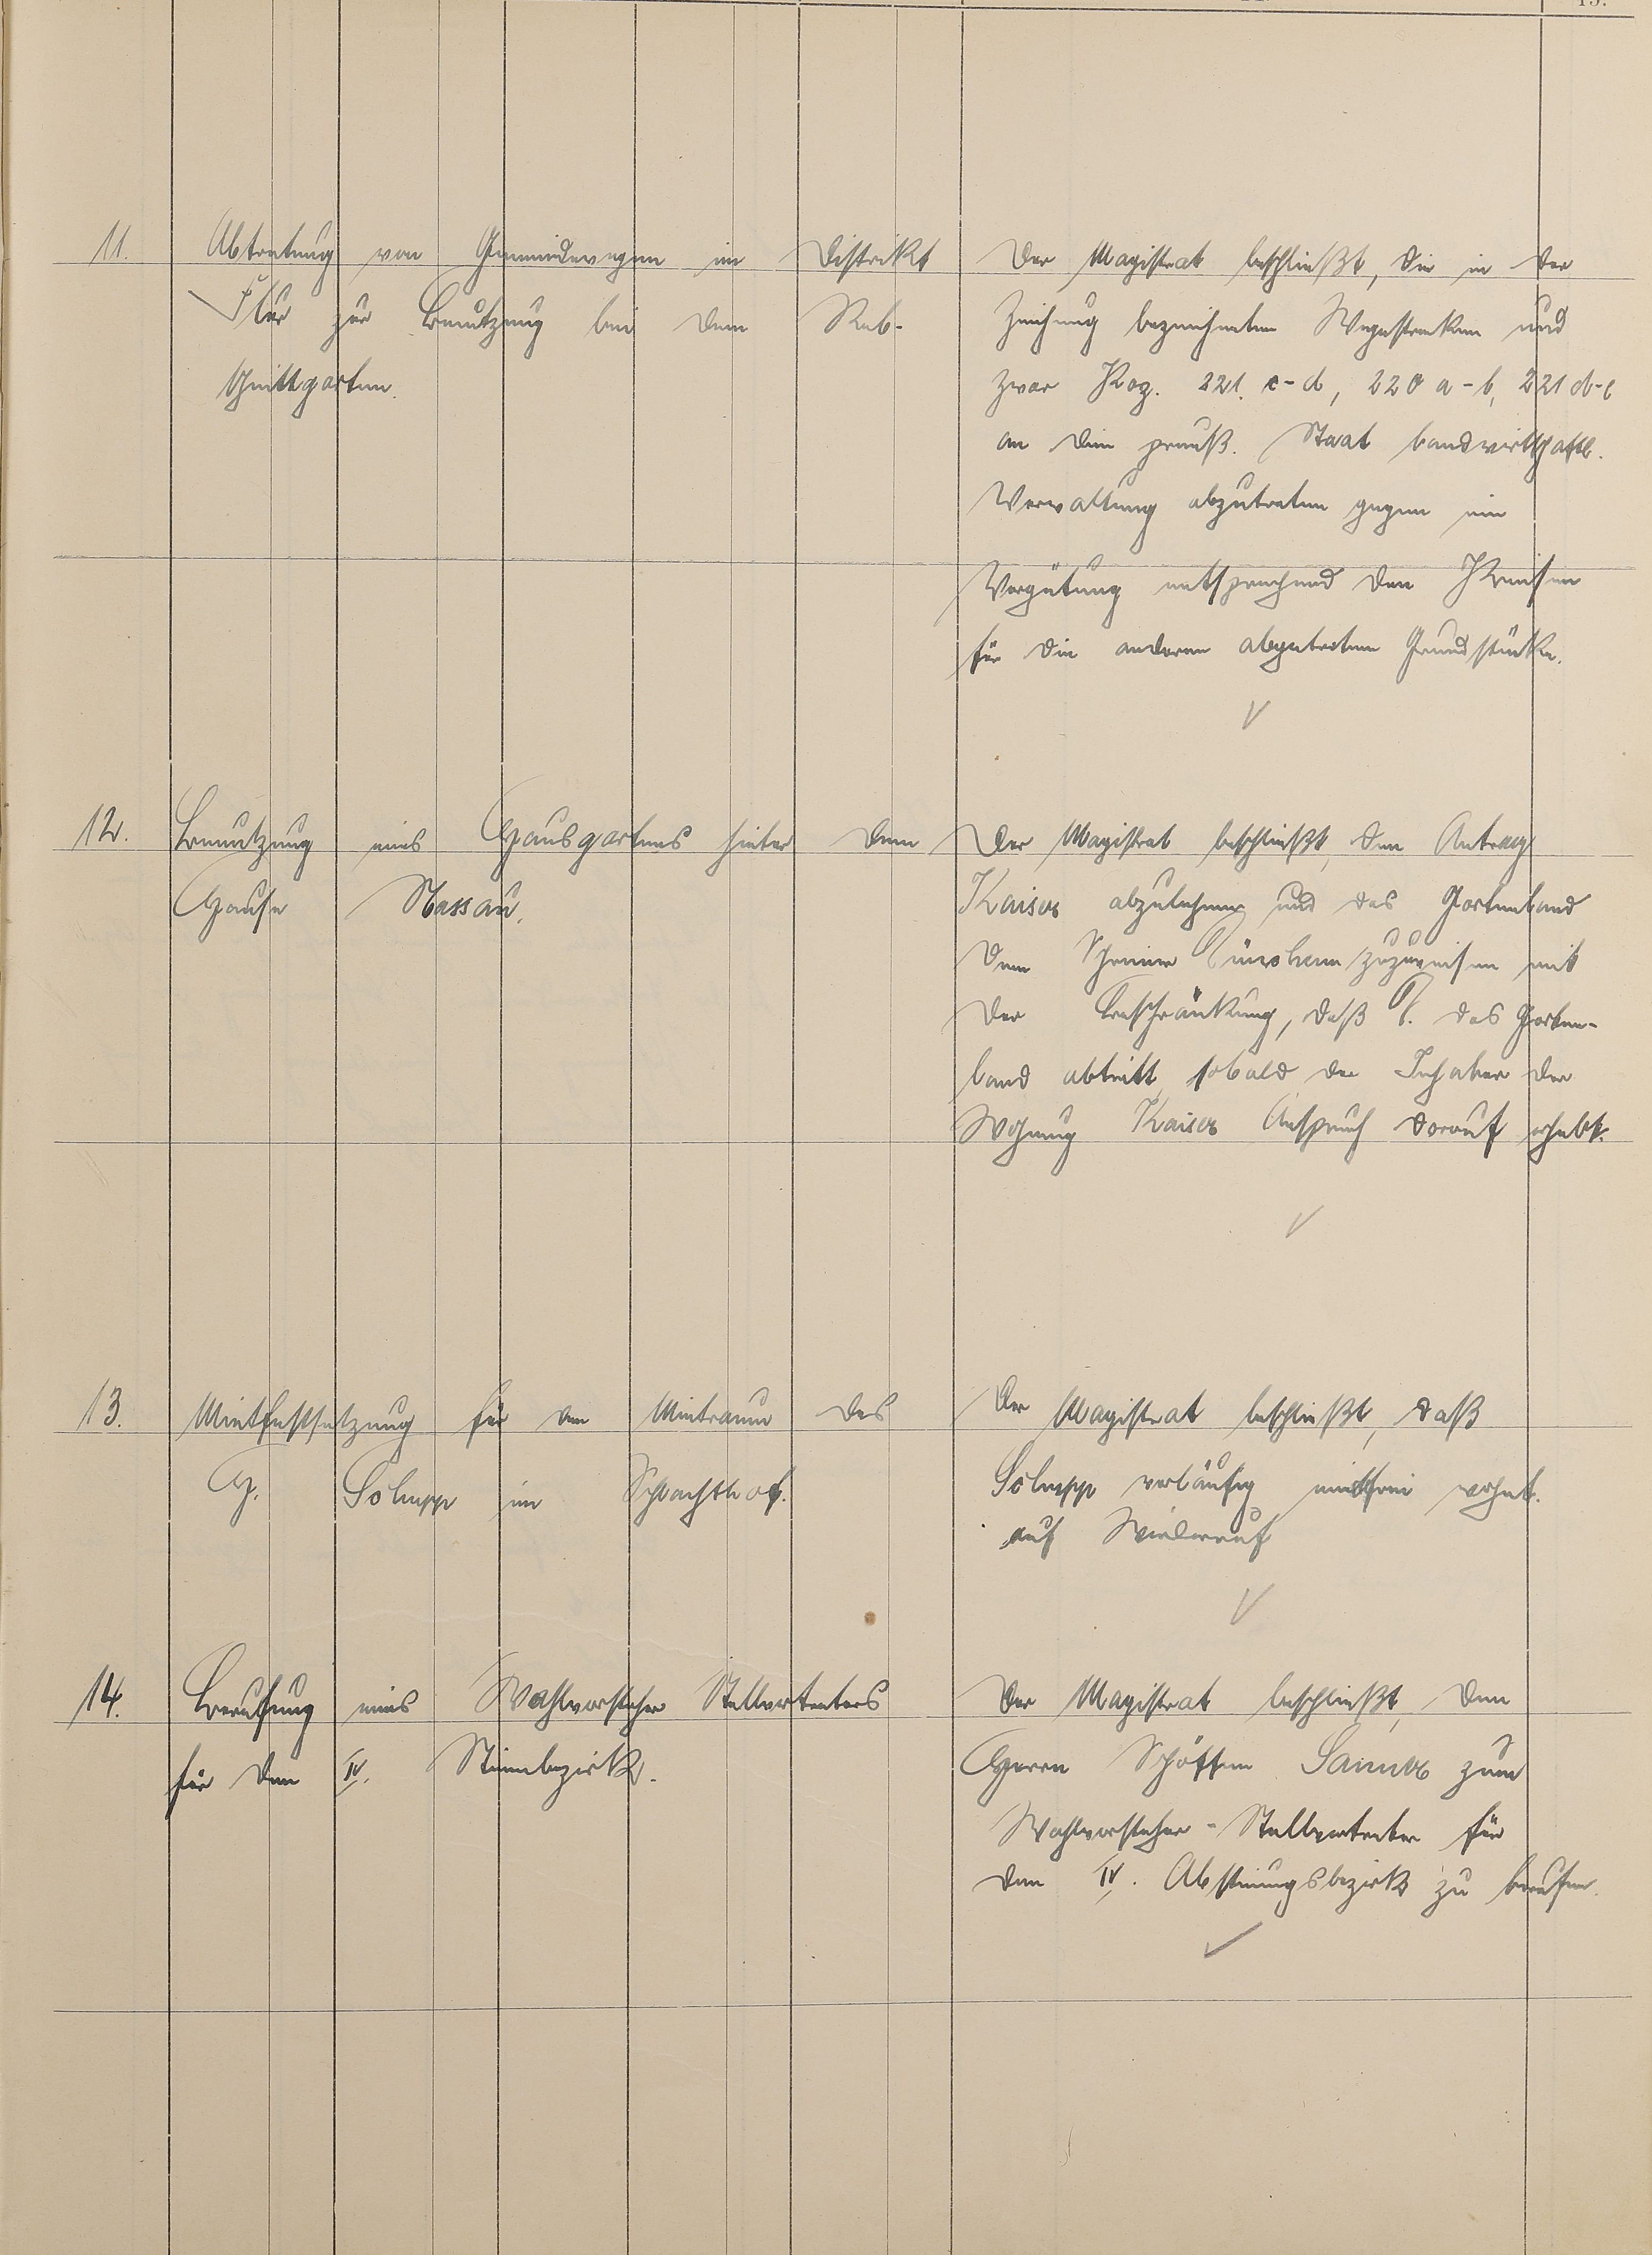 11. Abtretung von Gemeindewegen im Distrikt
Flur zur Benutzung bei dem Reb-
schnittgarten.
Der Magistrat beschließt, die in der
Zeichnung bezeichneten Wegestrecken und
zwar 221. c-d, 220 a-b, 221 d-e
an den preuß. Staat landwirtschaftl.
Verwaltung abzutreten gegen ein
Vergütung entsprechend den Preisen
für die anderen abgetretenen Grundstücke.
12. Benutzung eines Hausgartens hinter dem
Hause Nassau.
Der Magistrat beschließt, den Antrag
Kaiser abzulehnen und das Gartenland
dem Schreiner zuzuweisen mit
der Beschränkung, daß das Garten-
land abtritt, sobald der Inhaber der
Wohnung Kaiser Anspruch darauf erhebt.
13. Mietfestsetzung für den Mietraum des
H. Schupp im Schlachthof.
Der Magistrat beschließt, daß
Schupp vorläufig mietfrei wohnt.
auf Widerruf
14. Berufung eines Wahlvorsteher Stellvertreters
für den IV. Stimmbezirk.
Der Magistrat beschließt, den
Herrn Schöffen zum
Wahlvorsteher-Stellvertreter für
den IV. Abstimmungsbezirk zu berufen.